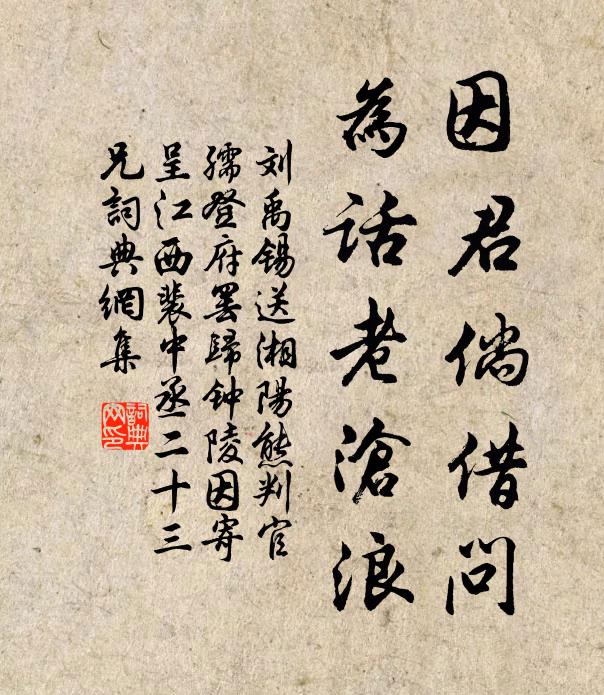 因君倘借问
為话老滄浪
刘禹锡送湘陽熊判官
孺登府罢歸钟陵因寄
呈江西裴中丞二十三
兄詞典網集
詞典
网印